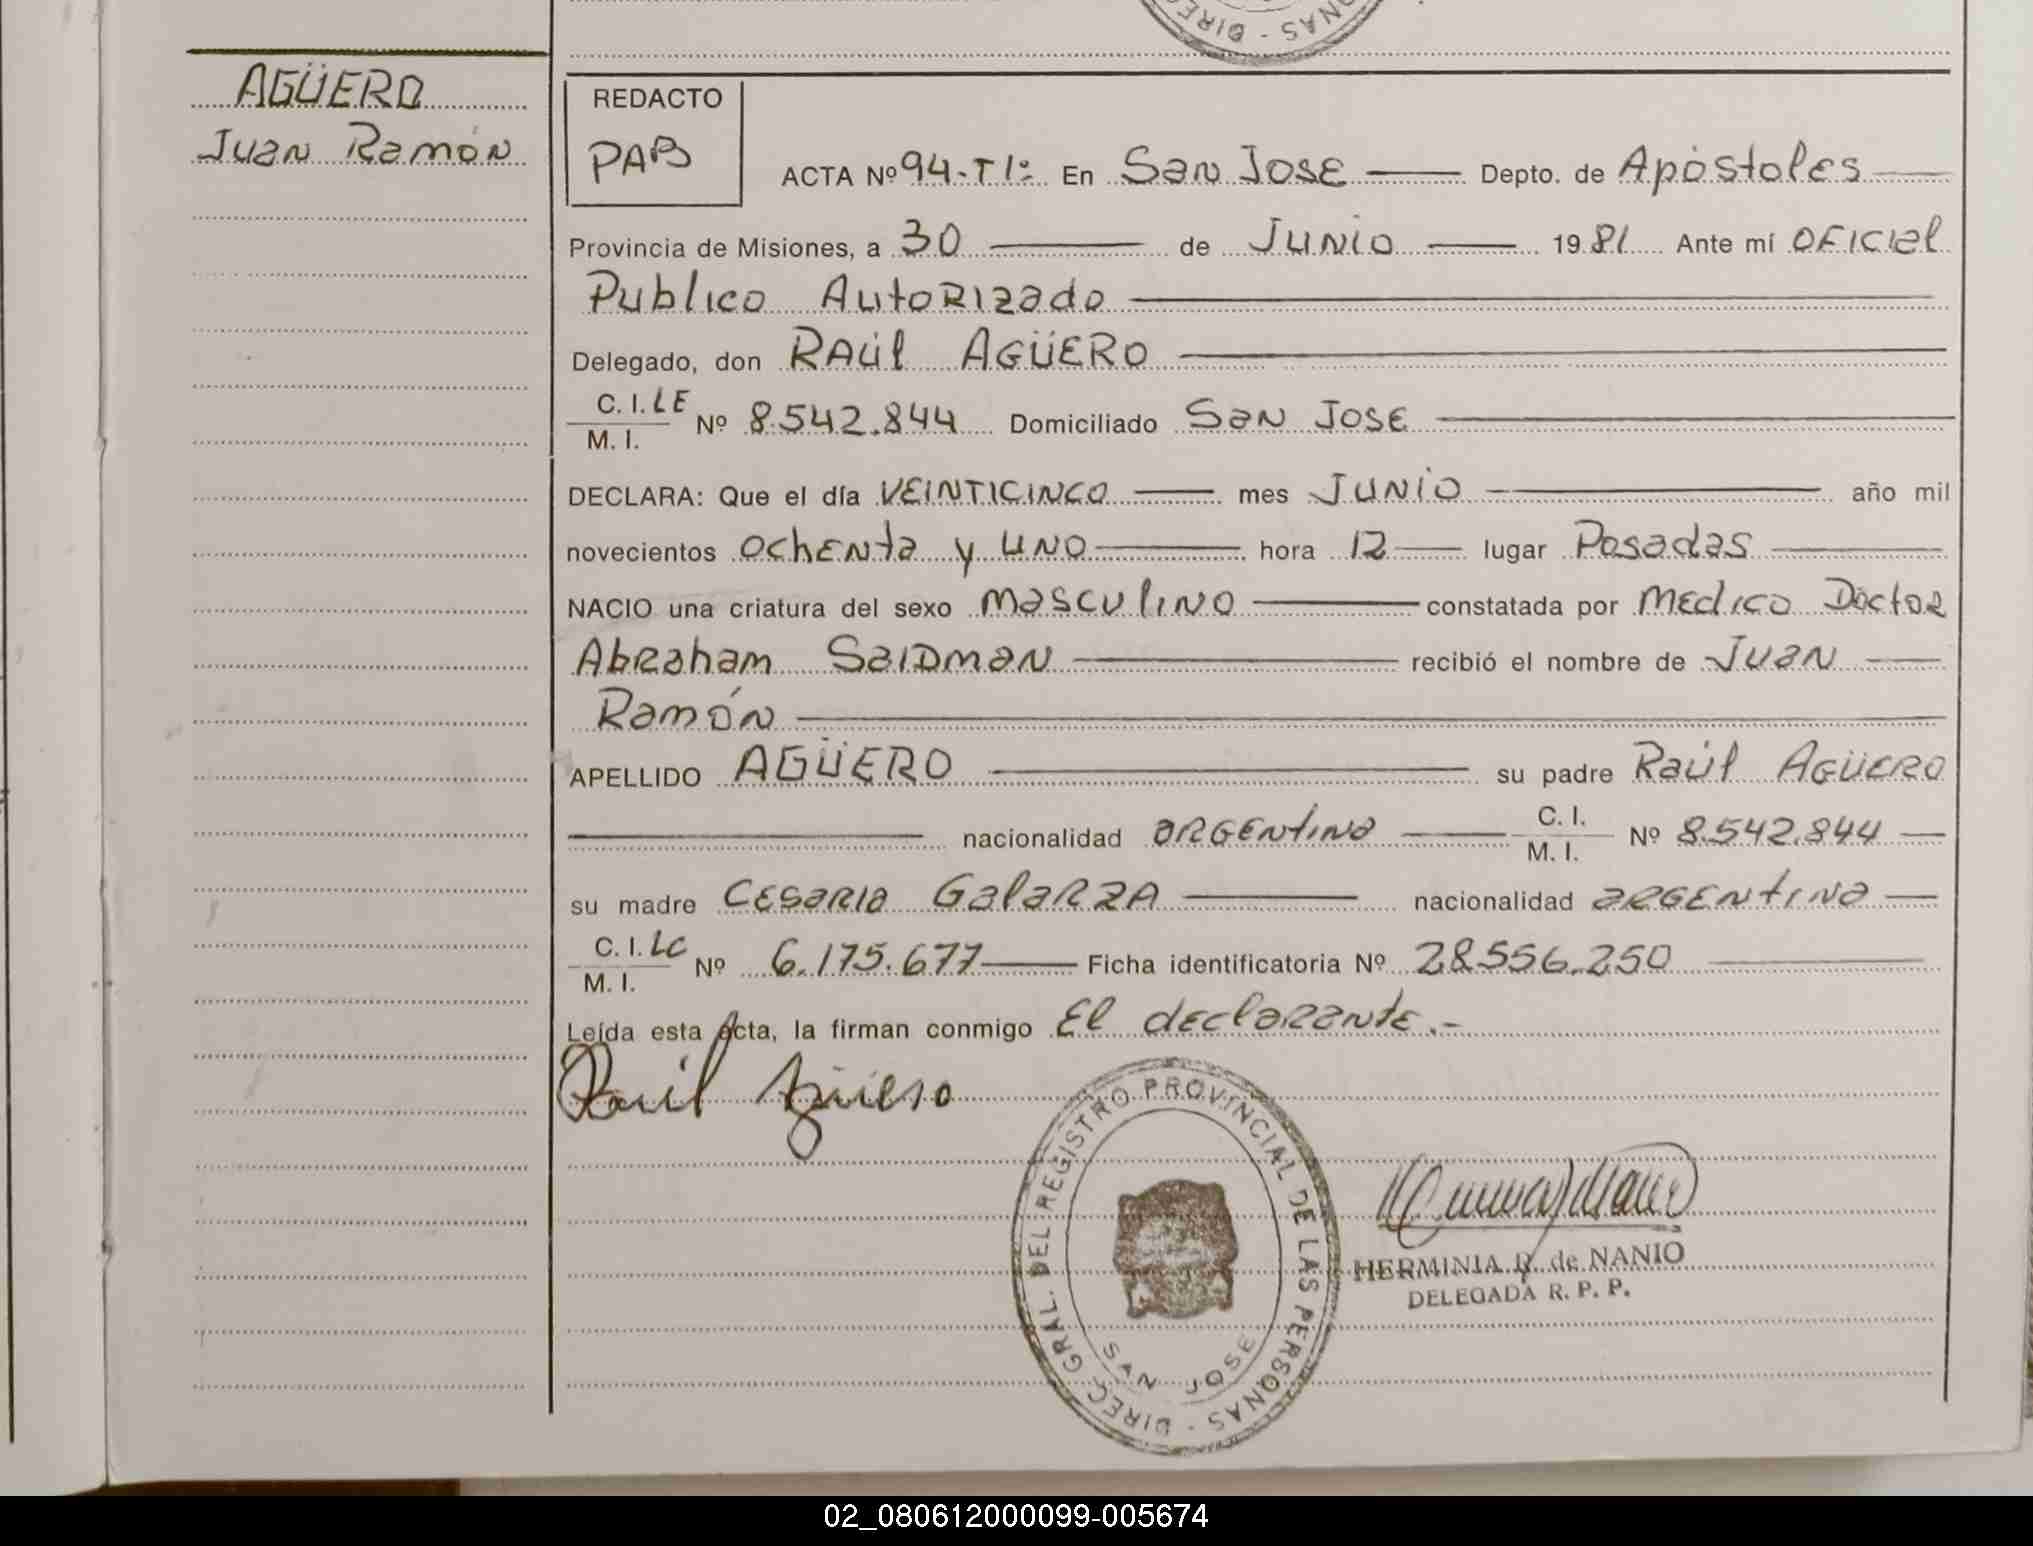 DIREC - NAS
AGÜERO
Juan Ramón
REDACTO
PAB
ACTA Nº 94-T1º En San Jose Depto. de Apóstoles
Provincia de Misiones, a 30 de Junio 1981 Ante mí Oficial
Publico Autorizado
Delegado, don Raúl Agüero
C. I. LE
M. I. Nº 8.542.844 Domiciliado San Jose
DECLARA: Que el día Veinticinco mes Junio año mil
novecientos ochenta y uno hora 12 lugar Posadas
NACIO una criatura del sexo masculino constatada por Medico Doctor
Abraham Saidman recibió el nombre de Juan
Ramón
APELLIDO AGÜERO su padre Raúl Agüero
nacionalidad argentina C. I.
M. I. Nº 8.542.844
su madre Cesaria Galarza nacionalidad argentina
C. I. LC
M. I. Nº 6.175.677 Ficha identificatoria Nº 28.556.250
Leída esta acta, la firman conmigo El declarante.-
Raúl Agüero
DIREC. GRAL. DEL REGISTRO PROVINCIAL DE LAS PERSONAS -
SAN JOSE
HERMINIA de NANIO
DELEGADA R. P. P.
02_080612000099-005674